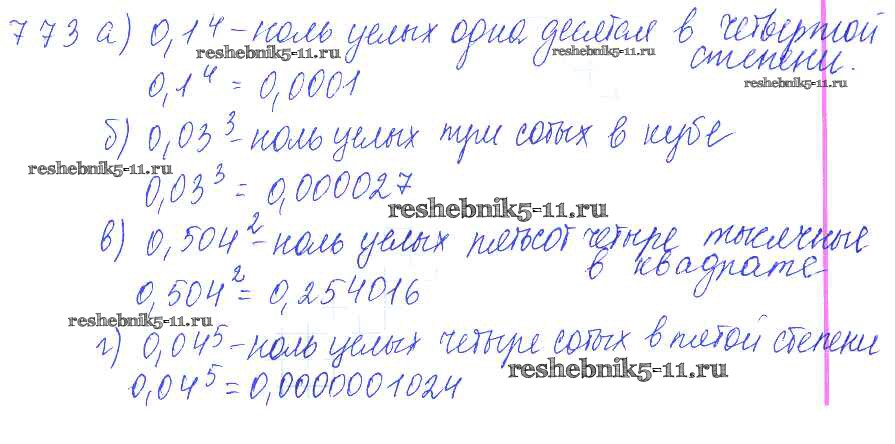 773 а) 0,1⁴ - ноль целых одна десятая в четвертой
reshebnik5-11.ru
reshebnik5-11.ru
степени.
reshebnik5-11.ru
0,1⁴ = 0,0001
б) 0,03³ - ноль целых три сотых в кубе
reshebnik5-11.ru
0,03³ = 0,000027
reshebnik5-11.ru
в) 0,504² - ноль целых пятьсот четыре тысячные
в квадрате
0,504² = 0,254016
reshebnik5-11.ru
г) 0,04⁵ - ноль целых четыре сотых в пятой степени
reshebnik5-11.ru
0,04⁵ = 0,0000001024